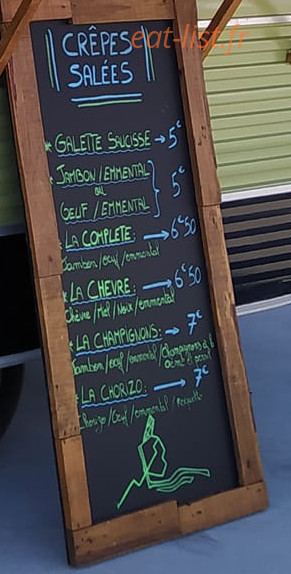 eat-list.fr
CRÊPES
SALÉES
GALETTE SAUCISSE → 5€
JAMBON / EMMENTAL
OU
OEUF / EMMENTAL
5€
LA COMPLETE: → 6€50
Jambon/oeuf/emmental
LA CHEVRE: → 6€50
Chèvre/Miel/Noix/emmental
LA CHAMPIGNONS: → 7€
Jambon/oeuf/emmental/Champignons à la
crème et persil
LA CHORIZO: → 7€
Chorizo/Oeuf/emmental/roquette